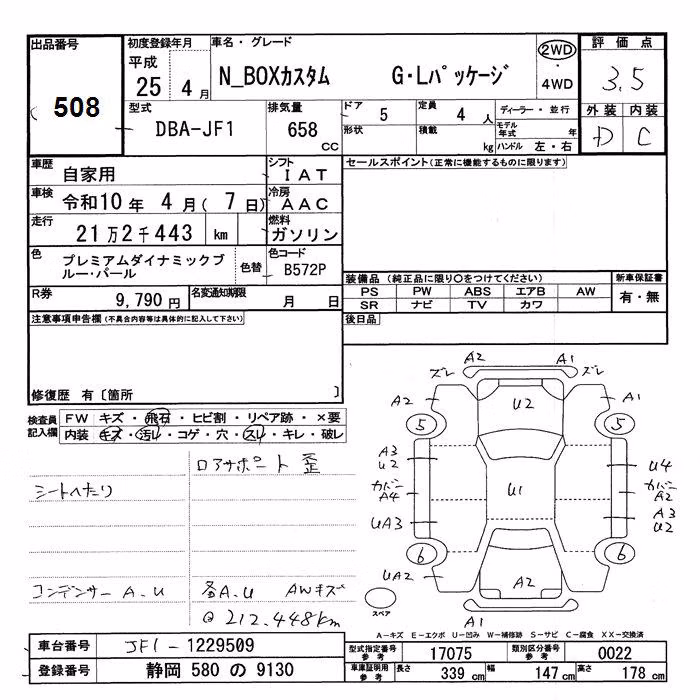 出品番号
508
初度登録年月
平成
25 4月
車名・グレード
N_BOXカスタム G・Lパッケージ
2WD
・
4WD
評価点
3.5
型式
DBA-JF1
排気量
658
CC
ドア
5
形状
定員
4人
積載
kg
ディーラー・並行
モデル年式 年
ハンドル 左・右
外装 内装
D C
車歴
自家用
シフト
IAT
セールスポイント(正常に機能するものに限ります)
車検
令和10年 4月( 7日)
冷房
AAC
走行
21万2千443 km
燃料
ガソリン
色
プレミアムダイナミックブルー・パール
色替
色コード
B572P
装備品(純正品に限り○をつけてください)
PS PW ABS エアB AW
SR ナビ TV カワ
新車保証書
有・無
R券
9,790円
名変通知期限
月 日
後日品
注意事項申告欄(不具合内容等は具体的に記入して下さい)
修復歴 有〔箇所 〕
検査員記入欄
FW キズ・飛石・ヒビ割・リペア跡・×要
内装 キズ・汚レ・コゲ・穴・スレ・キレ・破レ
ロアサポート 歪
シートへたり
コンデンサー A.U
A.U AWキズ
@ 212.448km
A2 A1
ズレ ズレ
A2 U2 A1
5 5
A3
U2
カバー
A4
U1
U4
カバー
A2
UA3
A3
U2
6 6
UA2 A2
スペア
A1
A-キズ E-エクボ U-凹み W-補修跡 S-サビ C-腐食 XX-交換済
車台番号
JF1-1229509
型式指定番号
参考
17075
類別区分番号
参考
0022
登録番号
静岡 580 の 9130
車庫証明用
参考
長さ
339 cm
幅
147 cm
高さ
178 cm